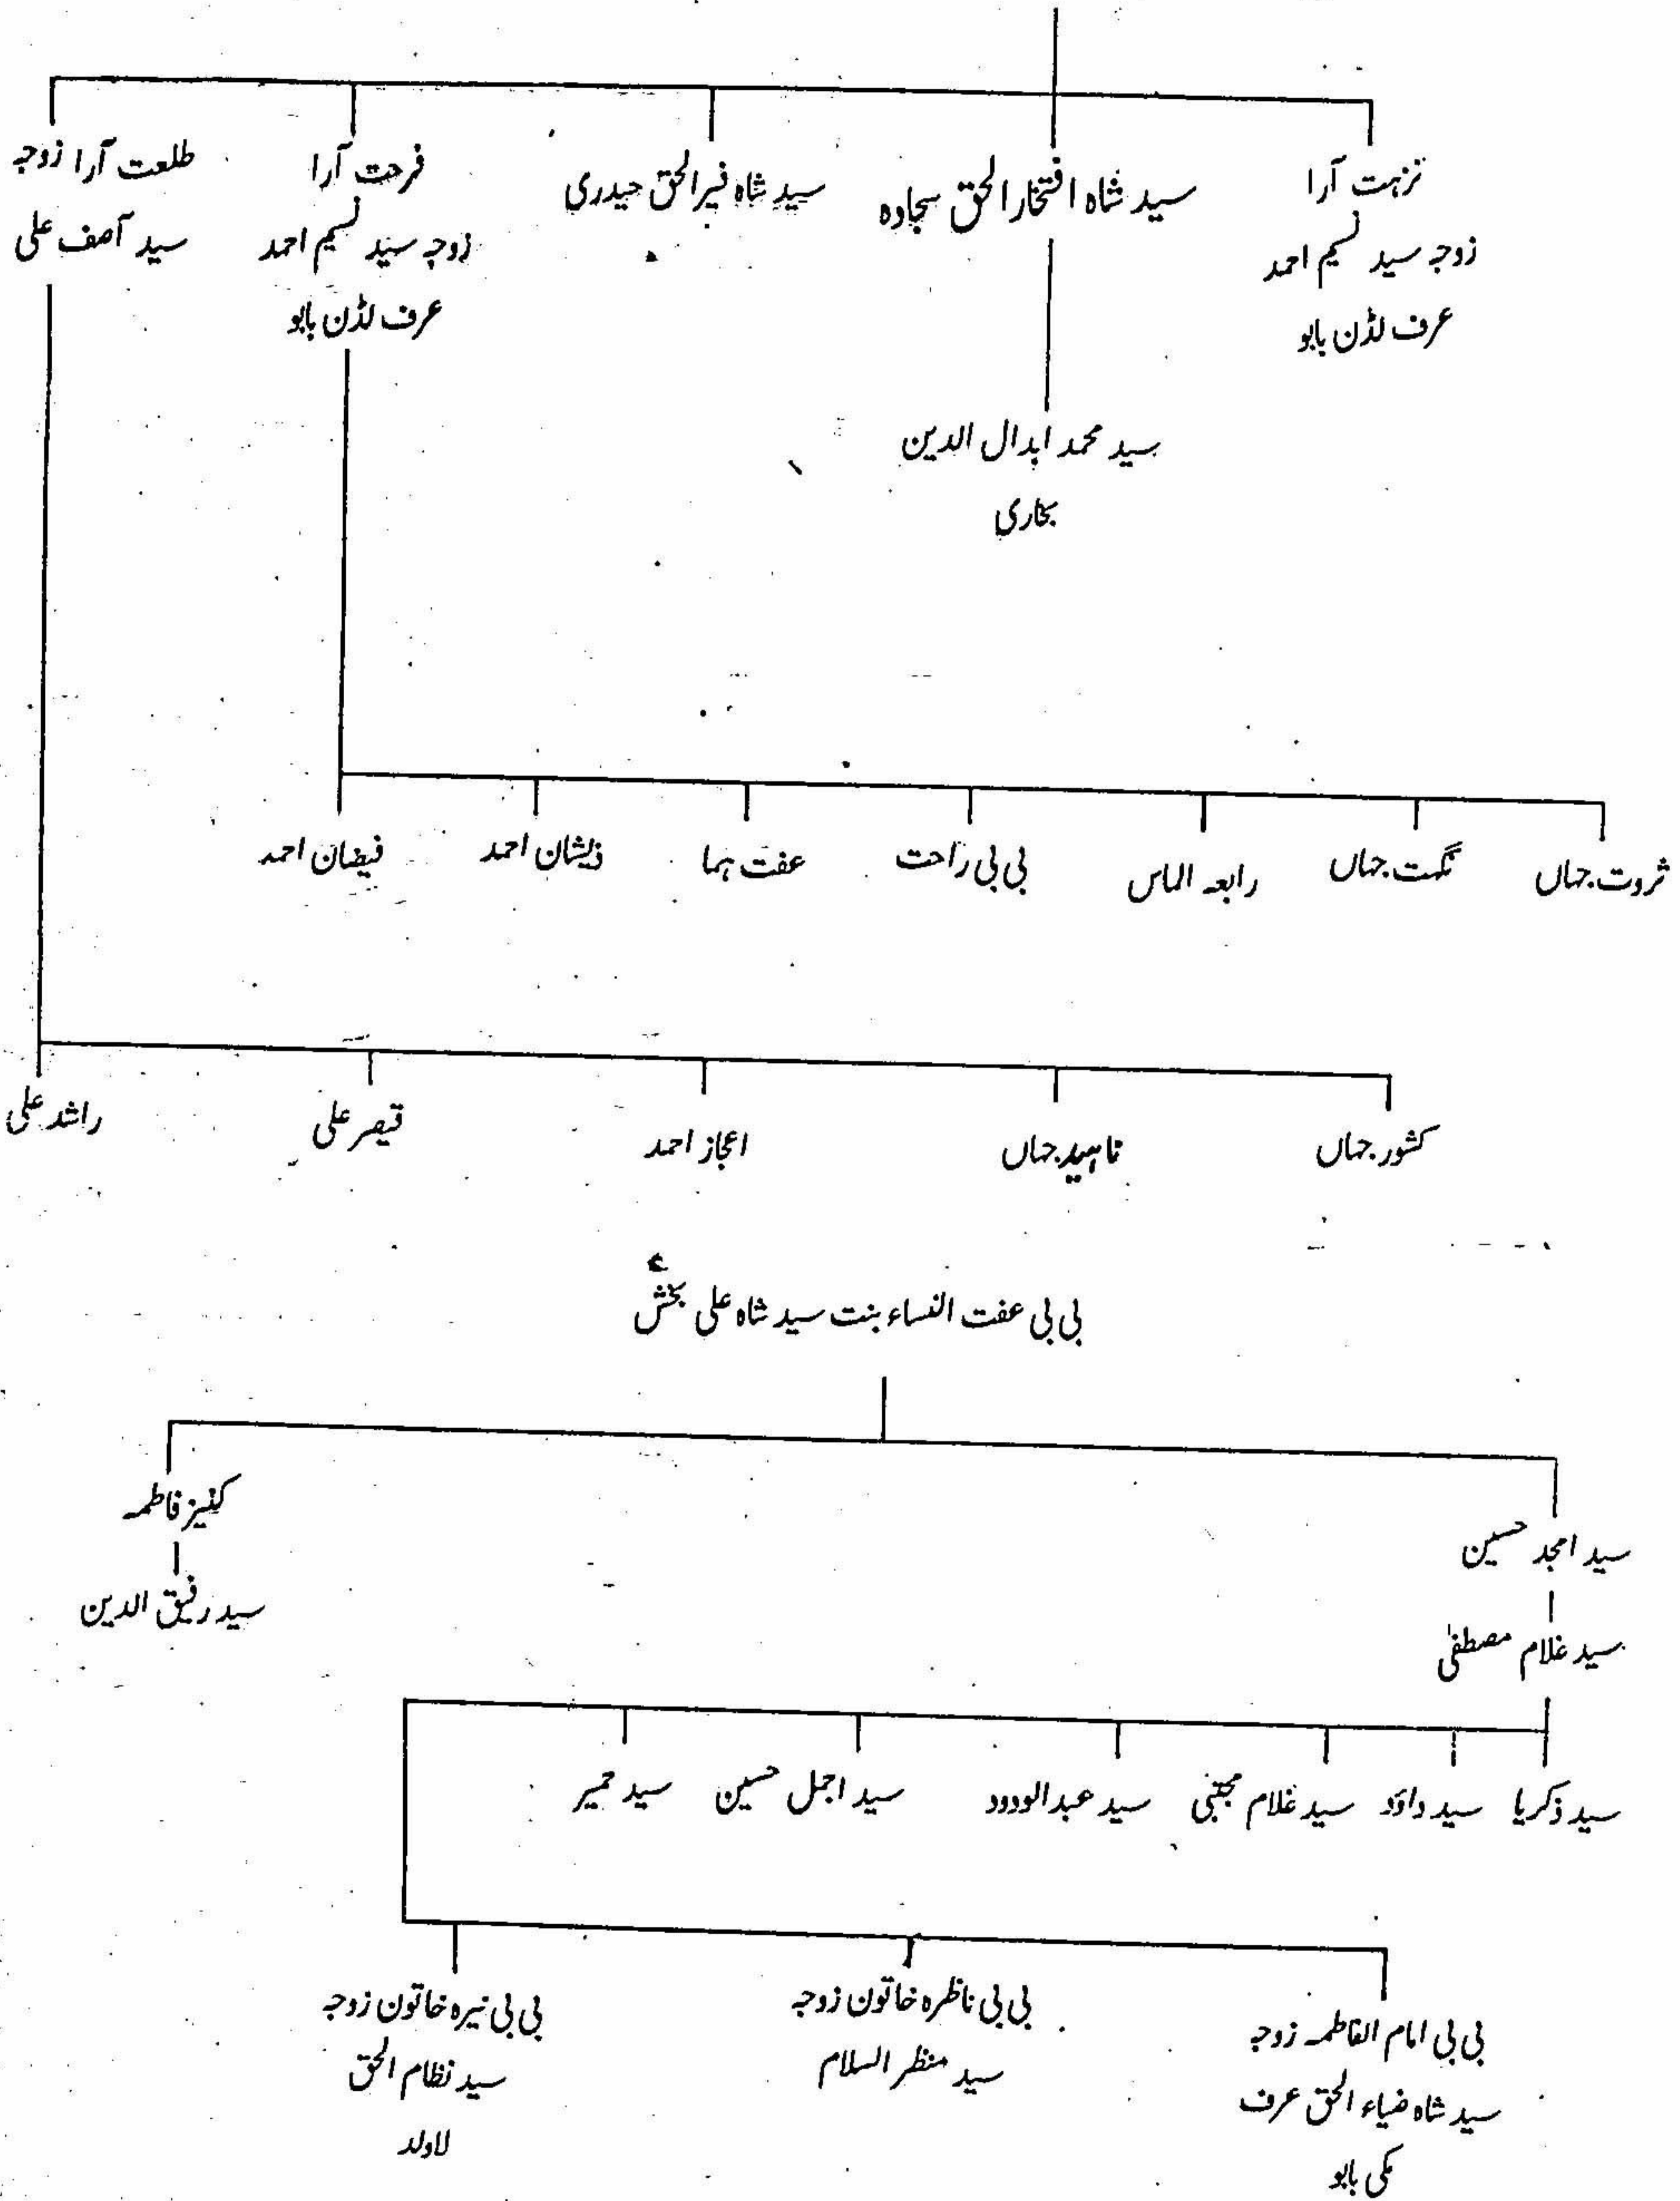 نزہت آرا
زوجہ سید نسیم احمد
عرف لڈن بابو
سید شاہ افتخار الحق سجادہ
سید شاہ نیر الحق حیدری
فرحت آرا
زوجہ سید نسیم احمد
عرف لڈن بابو
طلعت آرا زوجہ
سید آصف علی
سید محمد ابدال الدین
بخاری
ثروت جہاں
نگہت جہاں
رابعہ الماس
بی بی راحت
عفت ہما
ذیشان احمد
فیضان احمد
کشور جہاں
ناہید جہاں
اعجاز احمد
قیصر علی
راشد علی
بی بی عفت النساء بنت سید شاہ علی بخشؒ
سید امجد حسین
کنیز فاطمہ
سید رفیق الدین
سید غلام مصطفیٰ
سید ذکریا
سید داؤد
سید غلام مجتبی
سید عبدالودود
سید اجمل حسین
سید حمیر
بی بی امام الفاطمہ زوجہ
سید شاہ ضیاء الحق عرف
مکی بابو
بی بی ناظرہ خاتون زوجہ
سید منظر السلام
بی بی نیرہ خاتون زوجہ
سید نظام الحق
لاولد